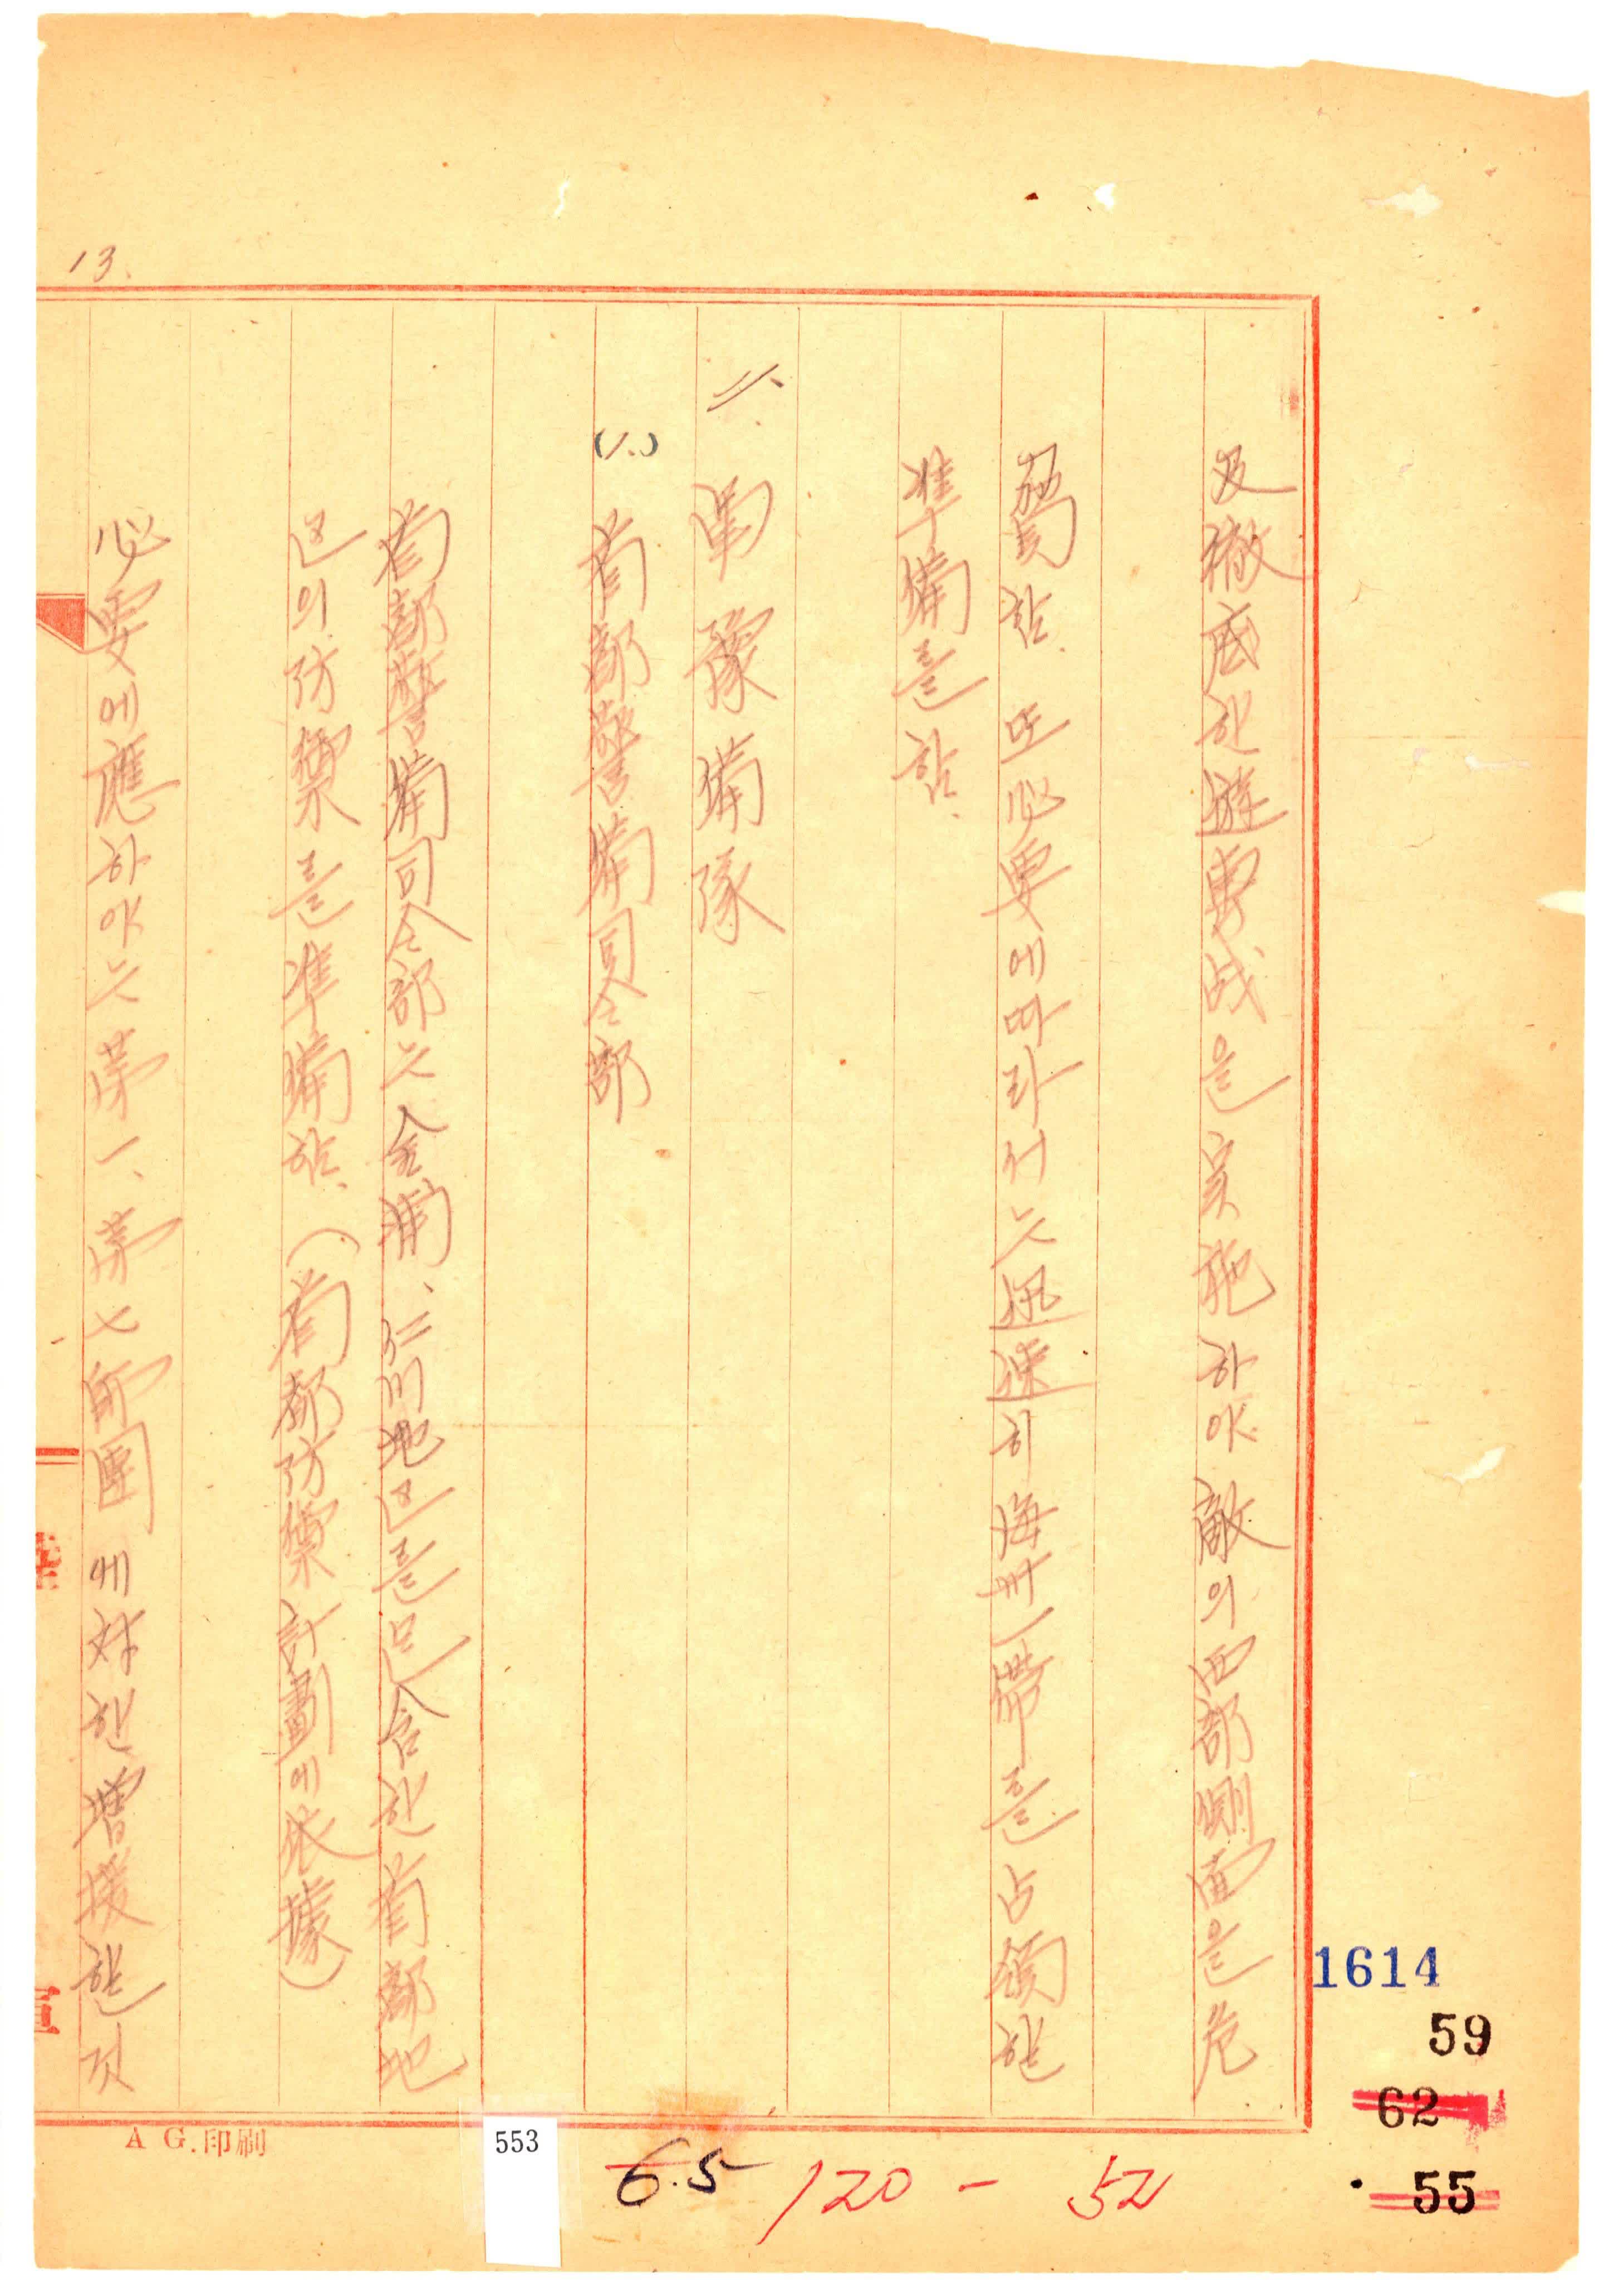 13.
及徹底한遊擊战을実施하야敵의西部側面을危
駕함.또必要에따라서는迅速히海州一帶를占領할
準備를함.
二、軍豫備隊
(1.)首都警備司令部
首都警備司令部는金浦、仁川地区를包含한首都地
区의防禦를準備함.(首都防禦計劃에依據)
必要에應하야는苐一、苐七師團에対한增援할것
A G.印刷
553
6.5
120 - 52
1614
59
62
55